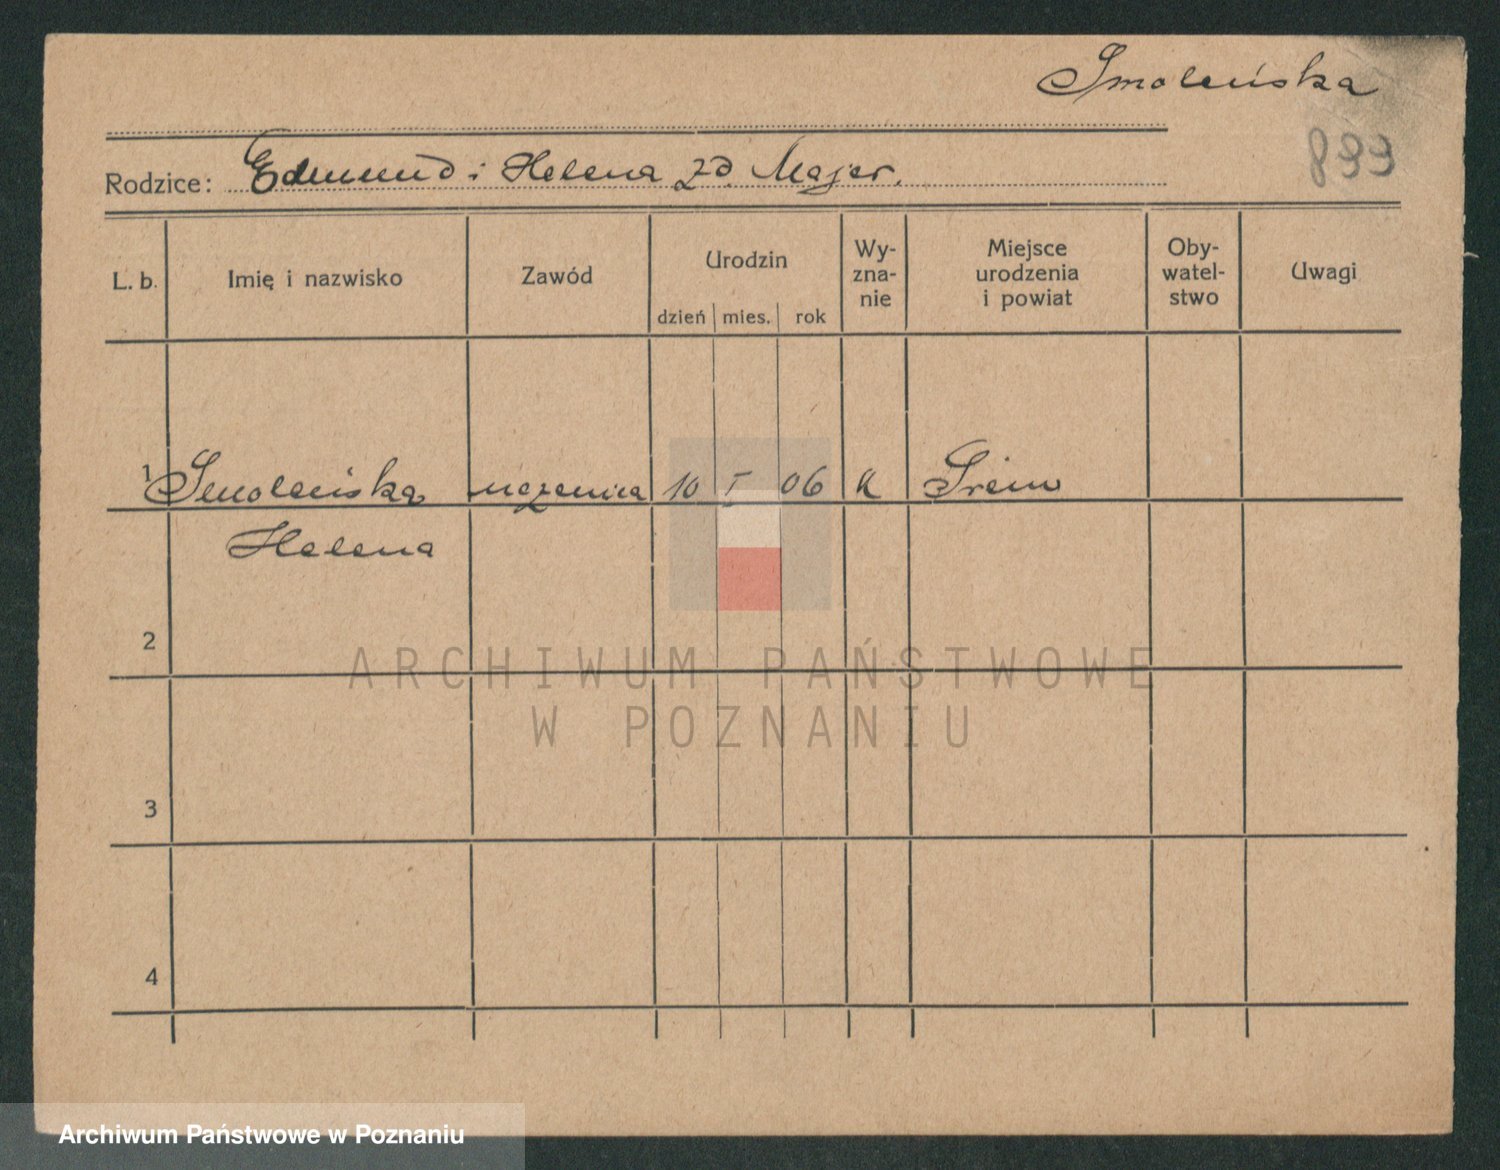 Smoleńska
899
Rodzice: Edmund i Helena zd. Majer.
L. b. Imię i nazwisko Zawód Urodzin Wy-zna-nie Miejsce urodzenia i powiat Oby-watel-stwo Uwagi
dzień mies. rok
1 Smoleńska uczenica 10 I 06 k Śrem
Helena
2
ARCHIWUM PAŃSTWOWE
W POZNANIU
3
4
Archiwum Państwowe w Poznaniu